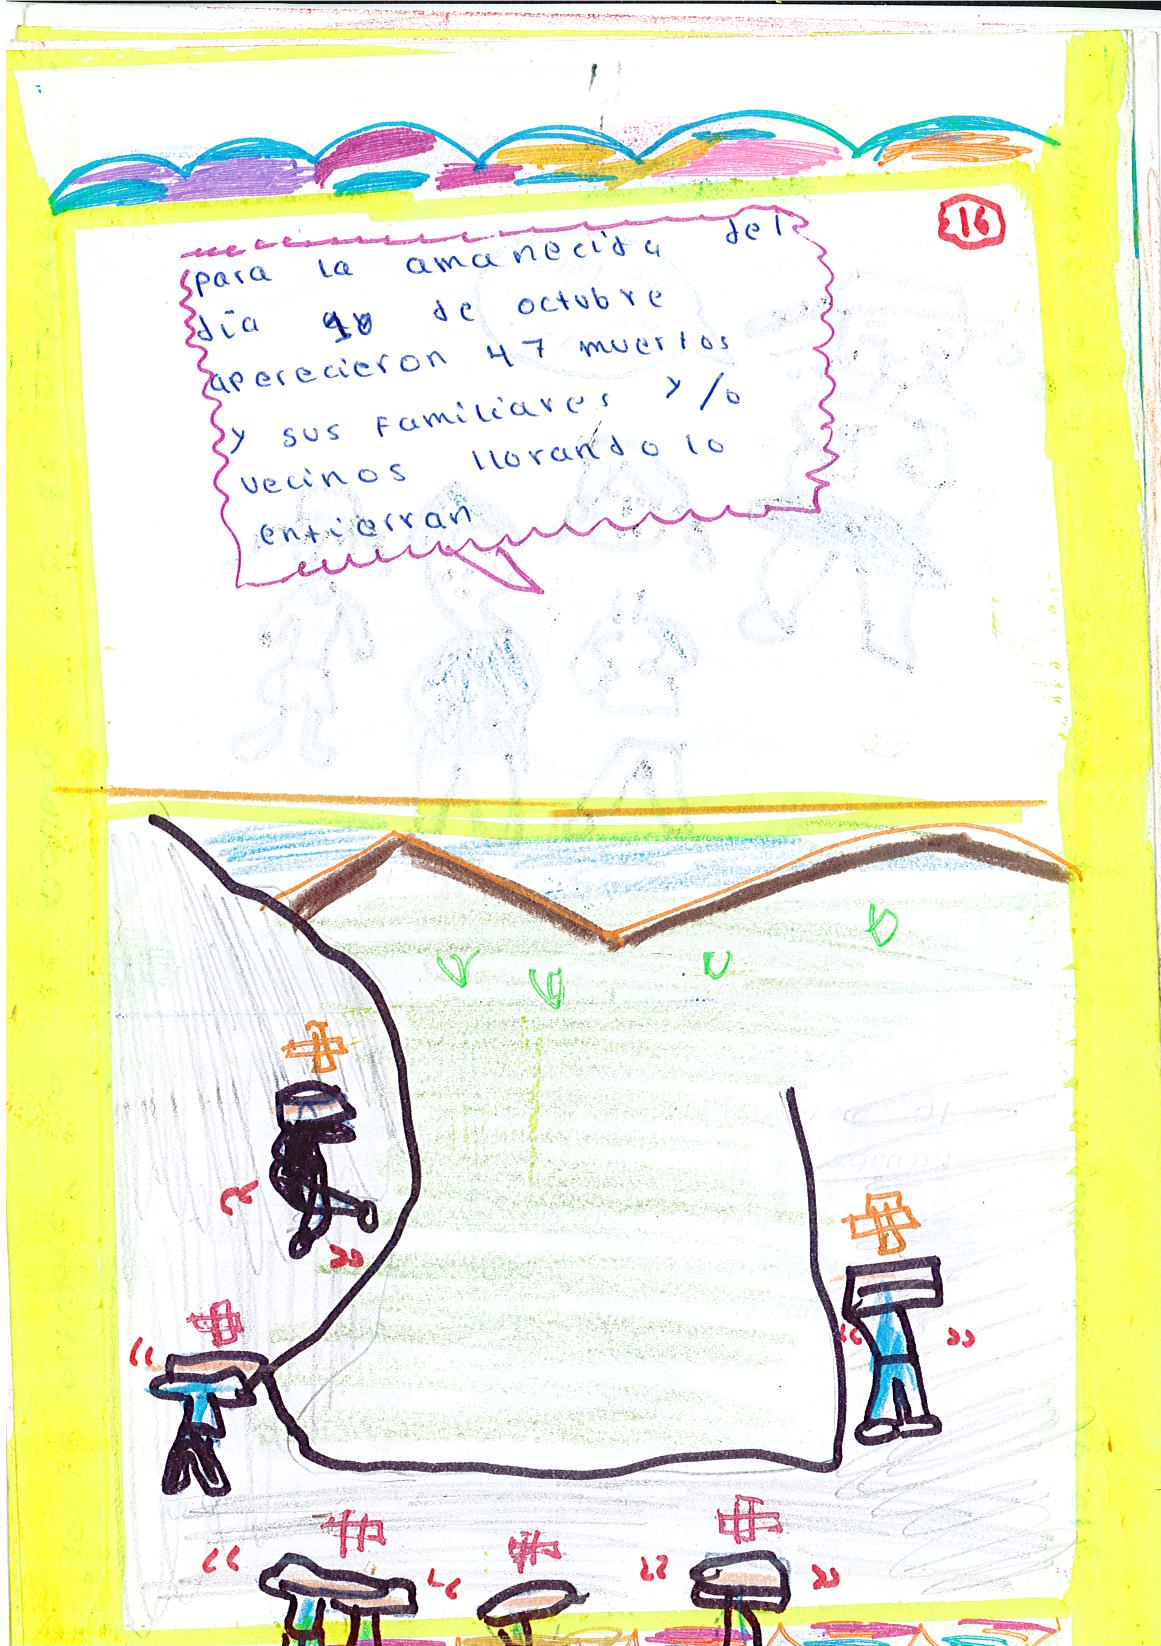 16
para la amanecida del
día 10 de octubre
aperecieron 47 muertos
y sus familiares y/o
vecinos llorando lo
entierran